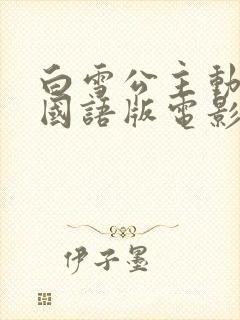 白雪公主動
國語版電影
伊子墨